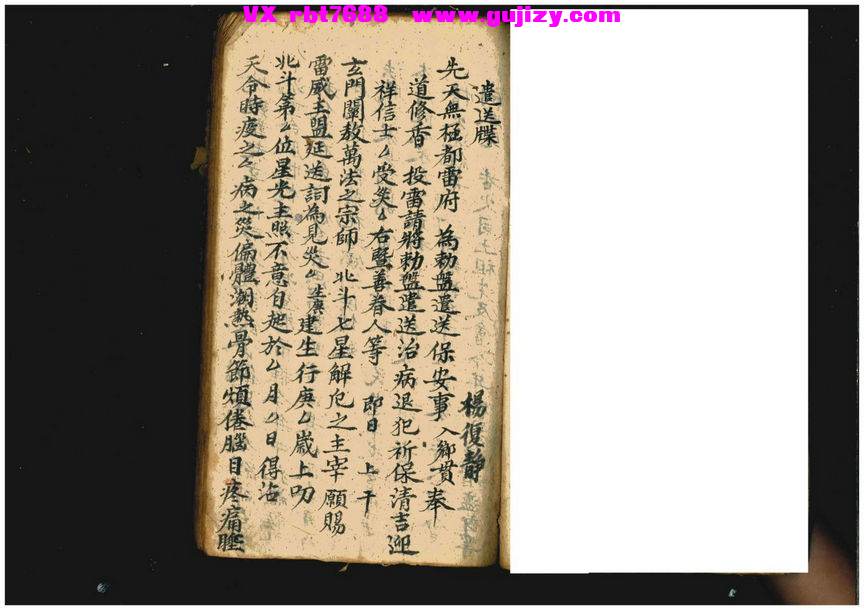 VX rbt7688 www.gujizy.com
遣送牒 楊復静
先天無極都雷府 為勅盤遣送保安事 入鄉貫奉
道修香 投雷請將勅盤遣送治病退犯祈保清吉迎
祥信士厶受災厶右暨善眷人等 即日 上干
玄門闡教萬法之宗師 北斗七星解厄之主宰 願賜
雷威主盟延送詞為見災厶生庚建生行庚厶歲上叨
北斗第厶位星光主照不意自起於厶月厶日得沾
天令時疫之厶病之災偏體潮熱骨節煩倦腦目疼痛